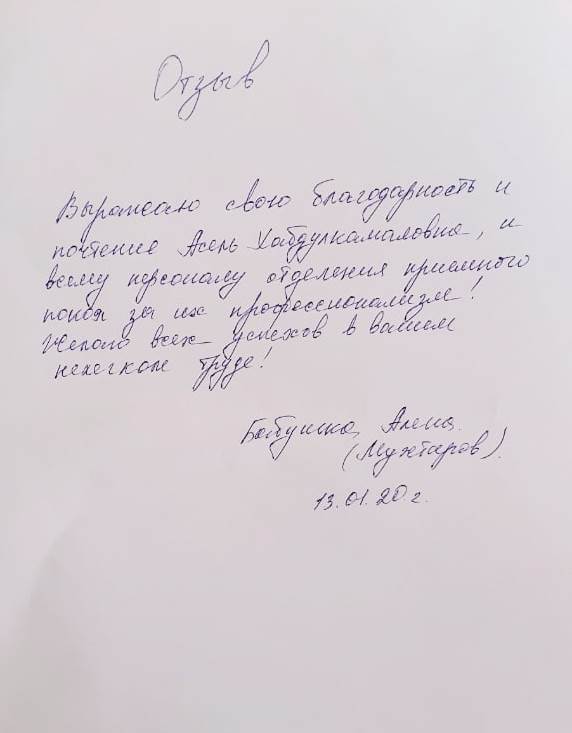 Отзыв
Выражаю свою благодарность и
почтение Асель Хабдулкамаловне, и
всему персоналу отделения приемного
покоя за их профессионализм!
Желаю всех успехов в вашем
нелегком труде!
Бабушка, Алена.
(Мухтаров).
13.01.20 г.